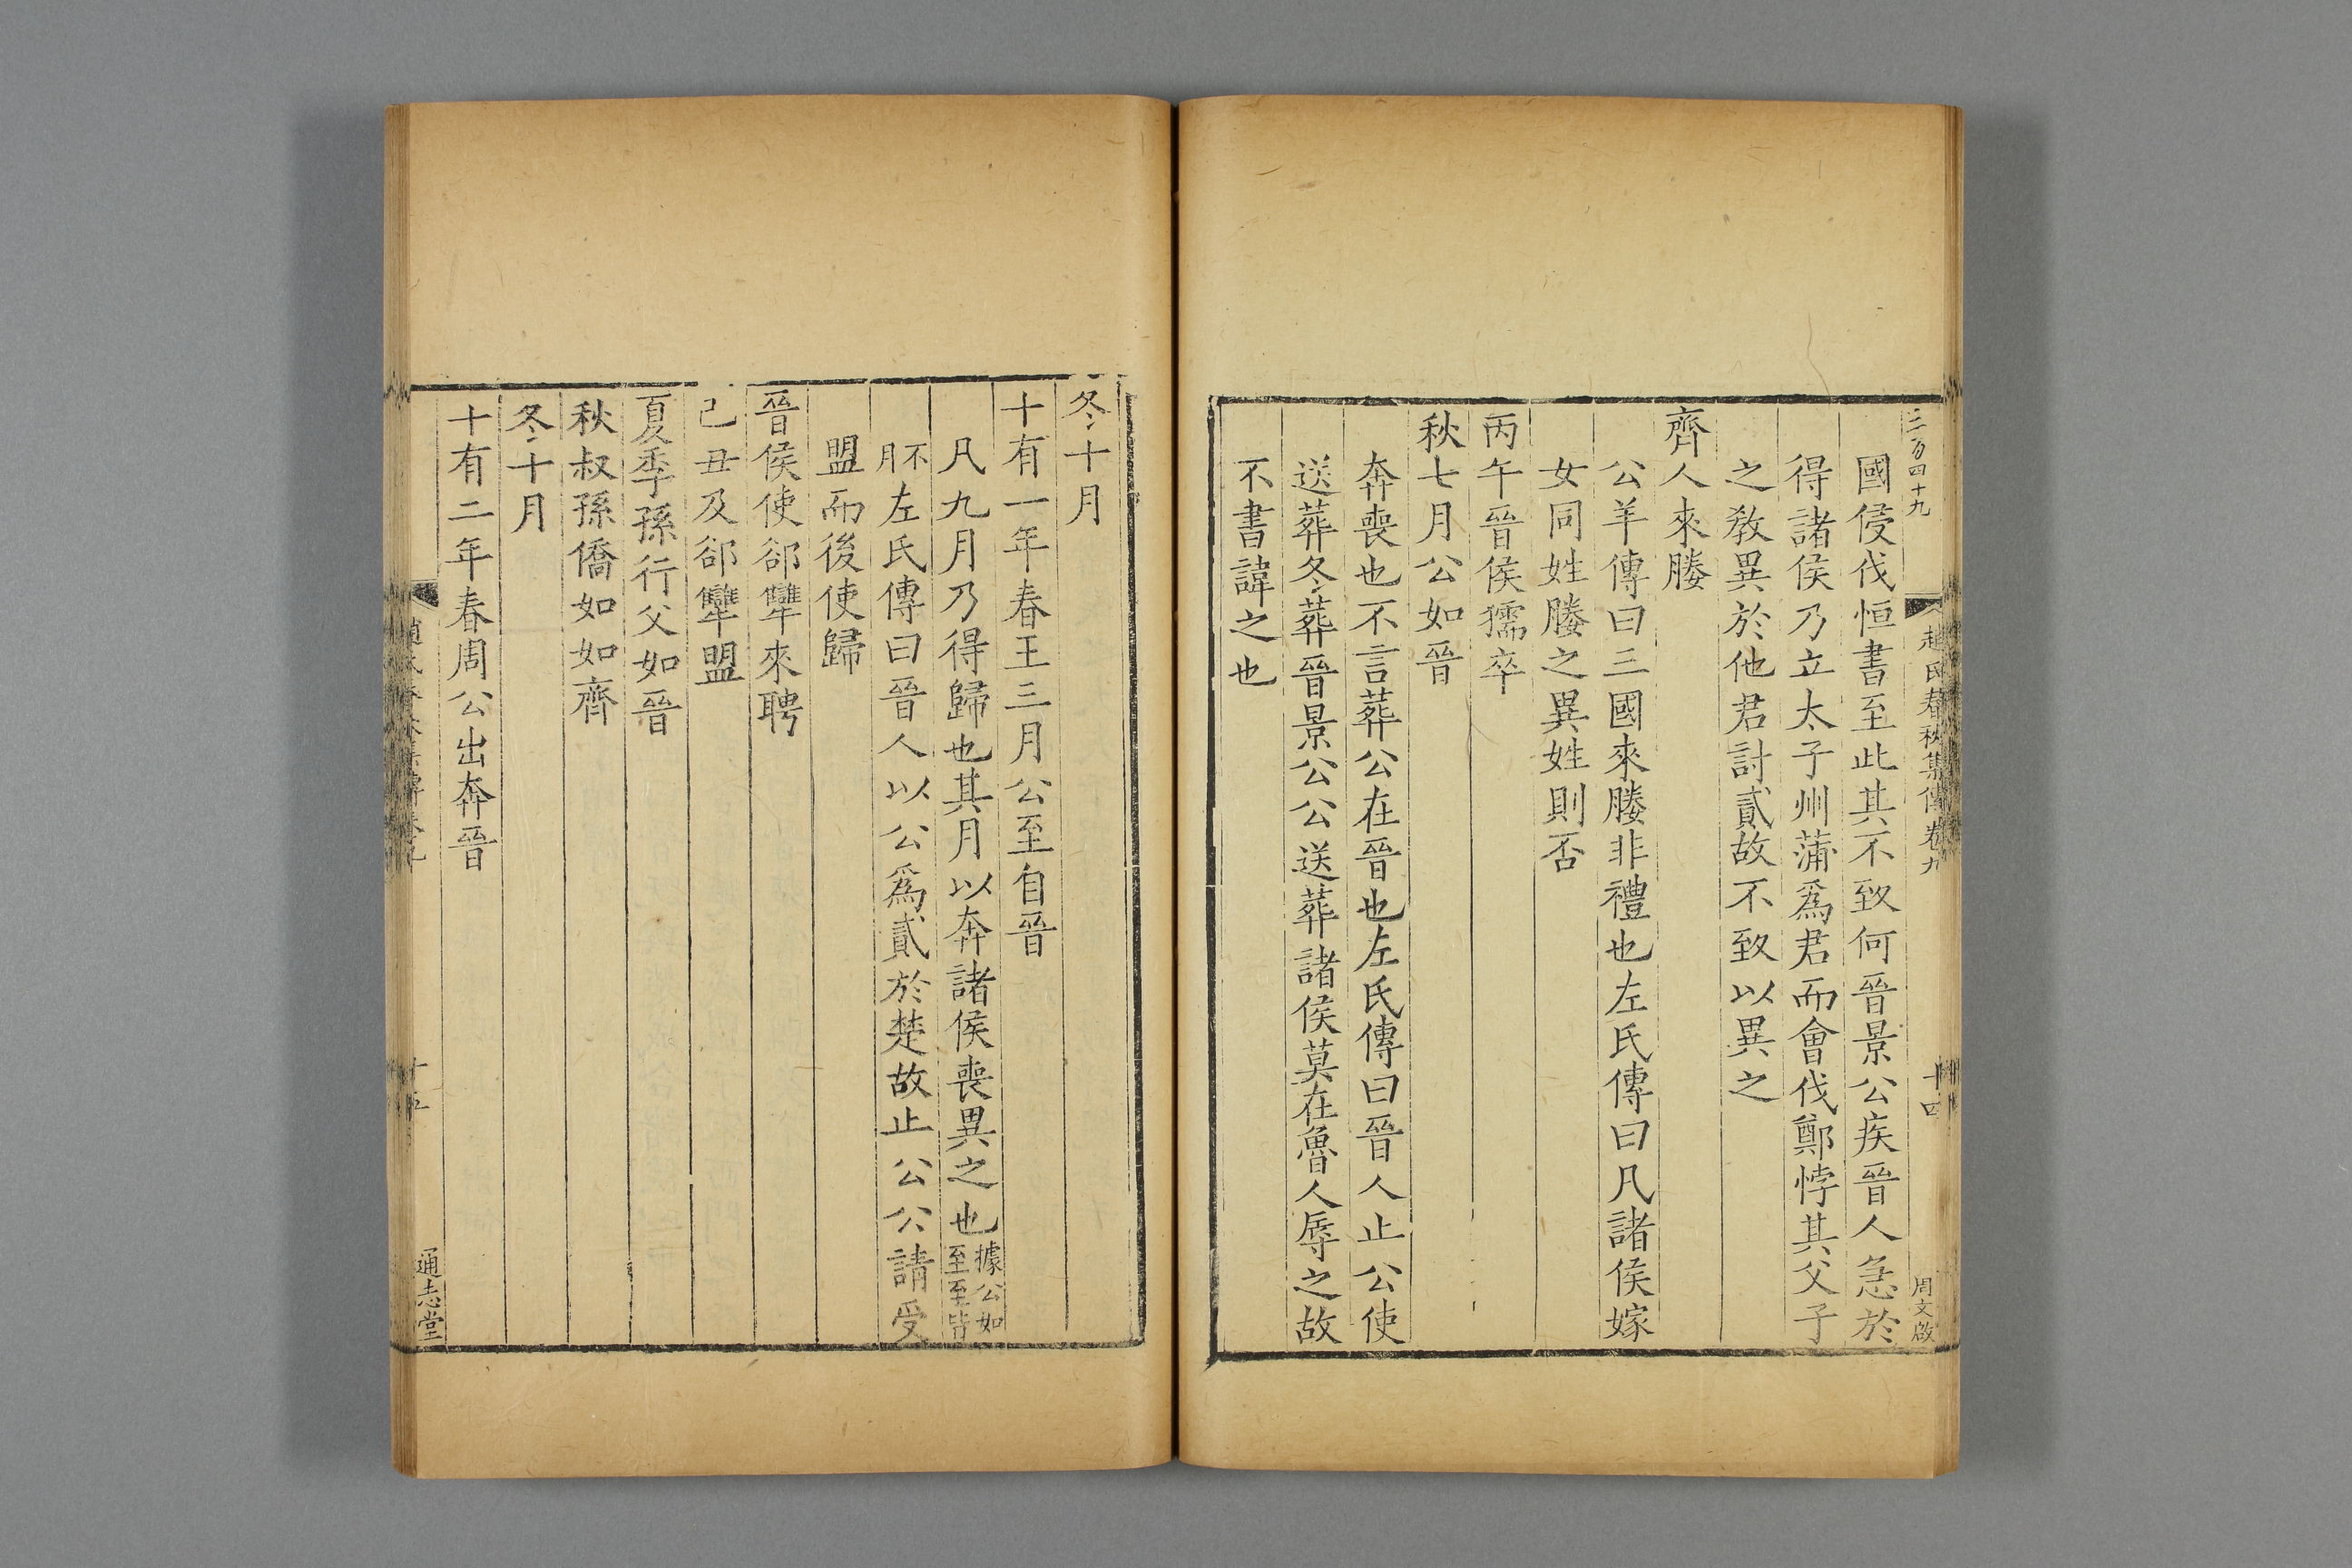 二百四十九
趙氏春秋集傳卷九
十四
周文啟
國侵伐恒書至此其不致何晉景公疾晉人急於
得諸侯乃立太子州蒲爲君而會伐鄭悖其父子
之教異於他君討貳故不致以異之
齊人來媵
公羊傳曰三國來媵非禮也左氏傳曰凡諸侯嫁
女同姓媵之異姓則否
丙午晉侯獳卒
秋七月公如晉
奔喪也不言葬公在晉也左氏傳曰晉人止公使
送葬冬葬晉景公公送葬諸侯莫在魯人辱之故
不書諱之也
冬十月
十有一年春王三月公至自晉
凡九月乃得歸也其月以奔諸侯喪異之也據公如
至至皆
不
月左氏傳曰晉人以公爲貳於楚故止公公請受
盟而後使歸
晉侯使郤犨來聘
己丑及郤犨盟
夏季孫行父如晉
秋叔孫僑如如齊
冬十月
十有二年春周公出奔晉
趙氏春秋集傳卷九
十五
通志堂